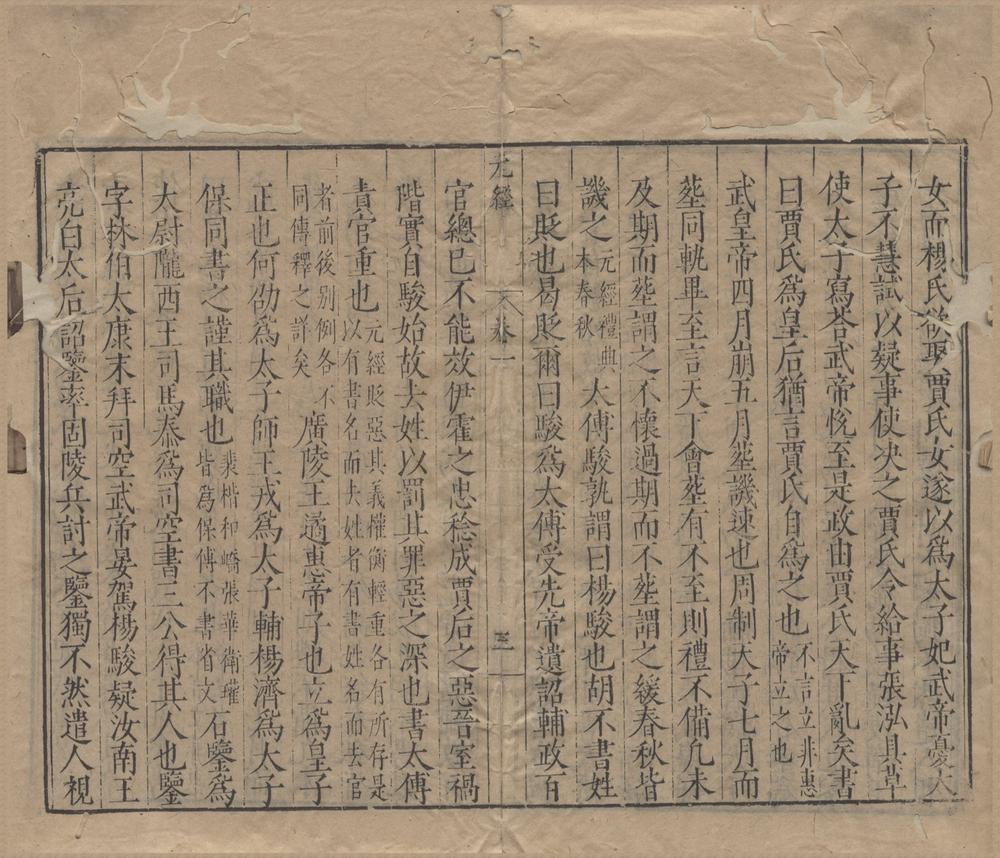 女而楊氏欲娶賈氏女遂以爲太子妃武帝憂太
子不慧試以疑事使决之賈氏令給事張泓具草
使太子寫荅武帝悅至是政由賈氏天下亂矣書
曰賈氏爲皇后猶言賈氏自爲之也不言立非惠帝立之也
武皇帝四月崩五月塟譏速也周制天子七月而
塟同軌畢至言天下會塟有不至則禮不備凡未
及期而塟謂之不懷過期而不塟謂之緩春秋皆
譏之元經禮典本春秋太傅駿孰謂曰楊駿也胡不書姓
曰貶也曷貶爾曰駿爲太傅受先帝遺詔輔政百
元經
卷一
三
官總已不能效伊霍之忠稔成賈后之惡晉室禍
階實自駿始故去姓以罰其罪惡之深也書太傅
責官重也元經貶惡其義權衡輕重各有所存是以有書名而去姓者有書姓名而去官
者前後别例各不同傳釋之詳矣廣陵王遹惠帝子也立爲皇子
正也何劭爲太子師王戎爲太子輔楊濟爲太子
保同書之謹其職也裴楷和嶠張華衛瓘皆爲保傅不書省文石鑒爲
太尉隴西王司馬泰爲司空書三公得其人也鑒
字林伯太康末拜司空武帝晏駕楊駿疑汝南王
亮白太后詔鑒率固陵兵討之鑒獨不然遣人視